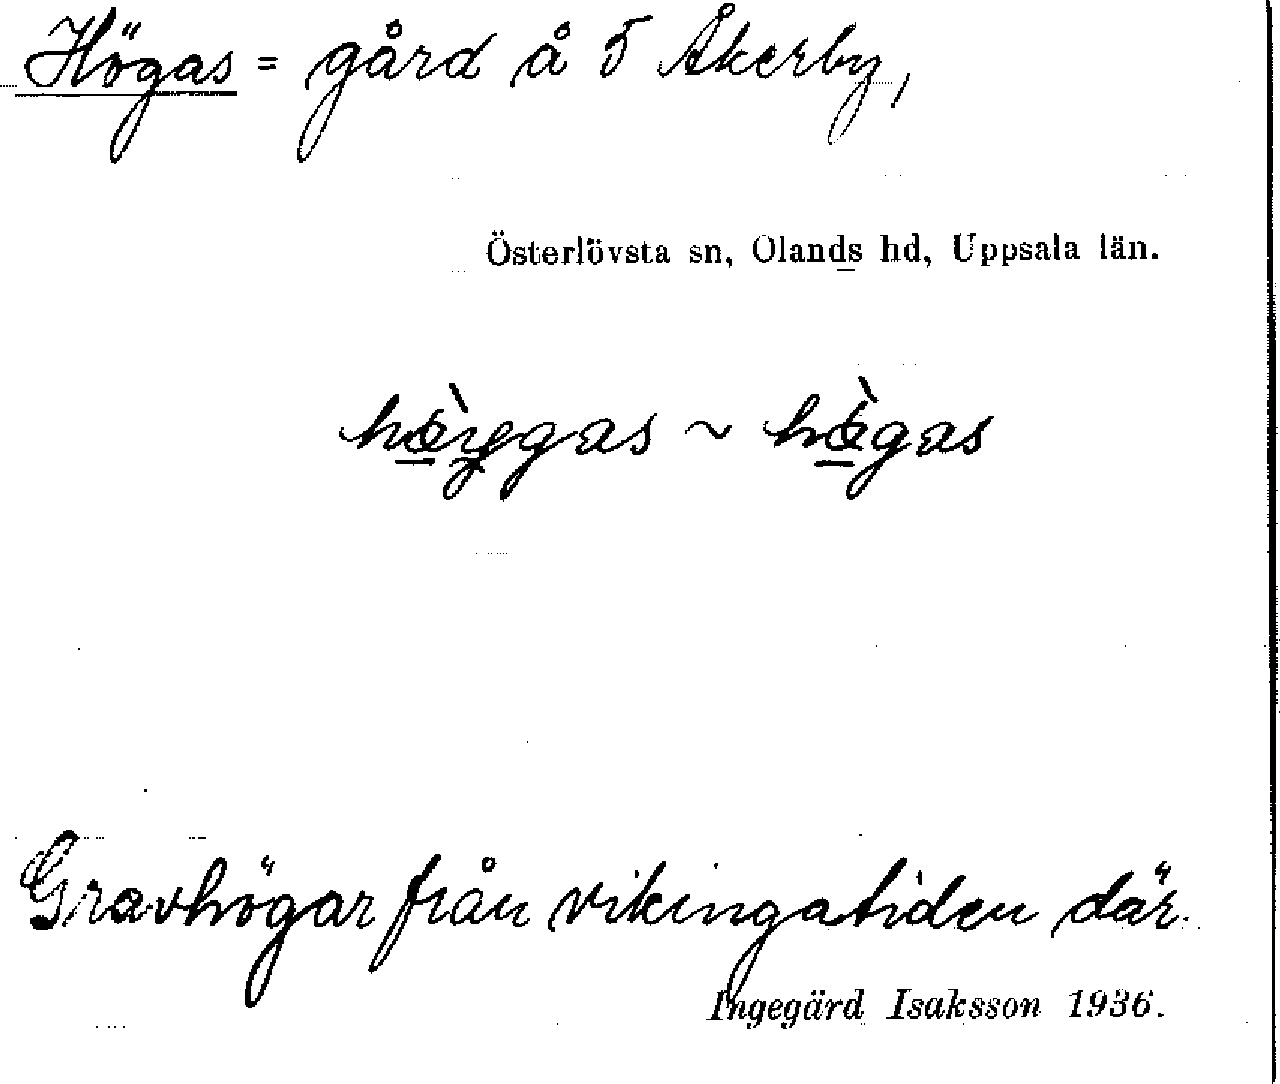 Högas = gård å 5 Åkerby,
Österlövsta sn, Olands hd, Uppsala län.
~
Gravhögar från vikingatiden där.
Ingegärd Isaksson 1936.